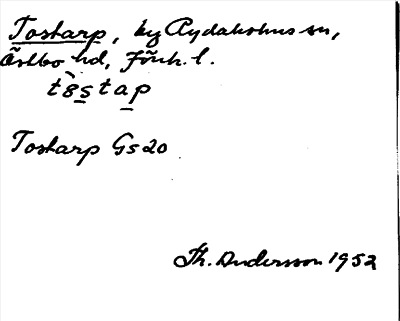 Tostarp, by Rydaholms sn,
Östbo hd, Jönk. l.
tɵ̀s̠ta̠p
Tostarp Gs20
Th. Andersson 1952